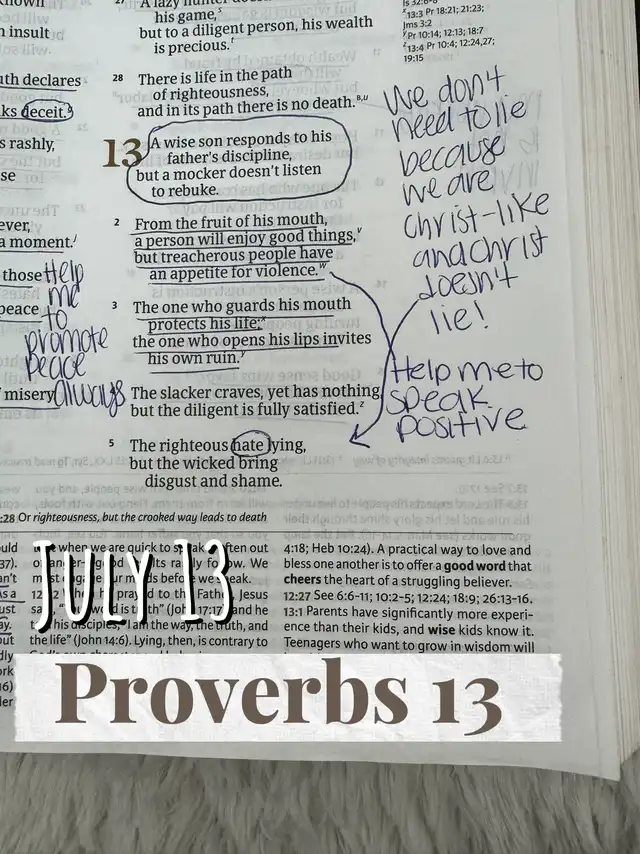 27 A lazy hunter doesn't
his game,ˢ
but to a diligent person, his wealth
is precious.ᵗ
28 There is life in the path
of righteousness,
and in its path there is no death.ᴮ,ᵘ
13 A wise son responds to his
father's discipline,
but a mocker doesn't listen
to rebuke.
2 From the fruit of his mouth,
a person will enjoy good things,ᵛ
but treacherous people have
an appetite for violence.ʷ
3 The one who guards his mouth
protects his life;ˣ
the one who opens his lips invites
his own ruin.ʸ
The slacker craves, yet has nothing,
but the diligent is fully satisfied.ᶻ
5 The righteous hate lying,
but the wicked bring
disgust and shame.
insult
declares
deceit.
rashly,
se
ever,
a moment.
those
peace
misery
Help
me
to
promote
peace
always
13:3 Pr 18:21; 21:23;
Jms 3:2
ʸ Pr 10:14; 12:13; 18:7
ᶻ 13:4 Pr 10:4; 12:24,27;
19:15
We don't
need to lie
because
we are
christ-like
and christ
doesn't
lie!
Help me to
speak
positive
:28 Or righteousness, but the crooked way leads to death
when we are quick to
rarely
We
before we speak.
to the Father, Jesus
truth" (John 17:17), and he
disciples, "I am the way, the truth, and
the life" (John 14:6). Lying, then, is contrary to
4:18; Heb 10:24). A practical way to love and
bless one another is to offer a good word that
cheers the heart of a struggling believer.
12:27 See 6:6-11; 10:2-5; 12:24; 18:9; 26:13-16.
13:1 Parents have significantly more experi-
ence than their kids, and wise kids know it.
Teenagers who want to grow in wisdom will
JULY 13
Proverbs 13